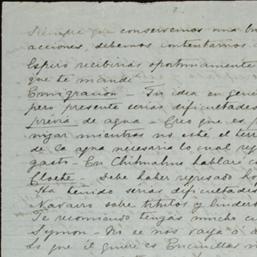 Siempre que conservemos una bu
acciones, debemos contentarnos
Espero recibirías oportunamente
que te mandé
Emigración - Tu idea en gener
pero presente serias dificultades
previa de agua - Creo que es
nizar mientras no esté el terre
de la agua necesaria lo cual req
gasto - En Chihuahua hablaré co
Cloete - Debe haber regresado ho
Ha tenido serias dificultades
Navarro sobre títulos y linderos
Te recomiendo tengas mucho cu
Symon - No se nos vaya á
lo que él quiere es Encinillas m